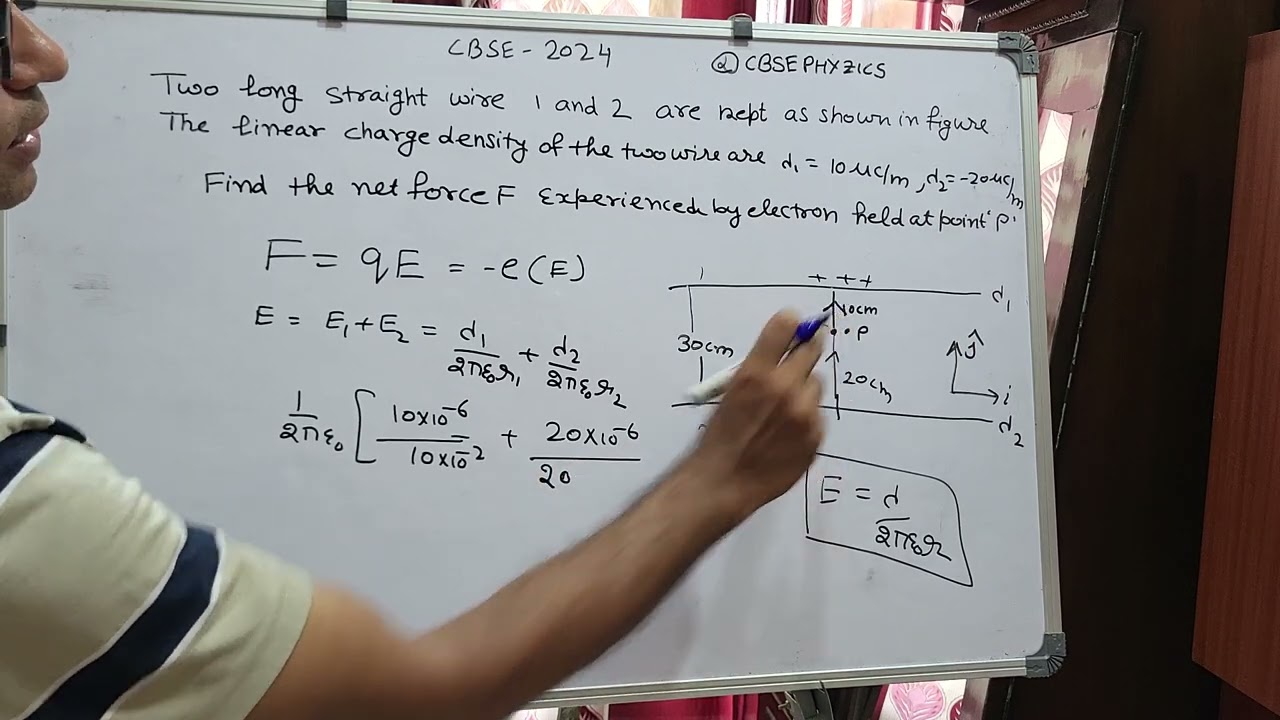 CBSE - 2024
@CBSEPHYZICS
Two long straight wire 1 and 2 are kept as shown in figure
The linear charge density of the two wire are d₁ = 10 μc/m, d₂ = -20 μc/m
Find the net force F experienced by electron held at point 'P'
F = qE = -e(E)
E = E₁ + E₂ = d₁/2πε₀r₁ + d₂/2πε₀r₂
1/2πε₀ [ 10×10⁻⁶/10×10⁻² + 20×10⁻⁶/20
1 + + + d₁
10cm
P
30cm
ĵ
20cm
i
d₂
E = d/2πε₀r